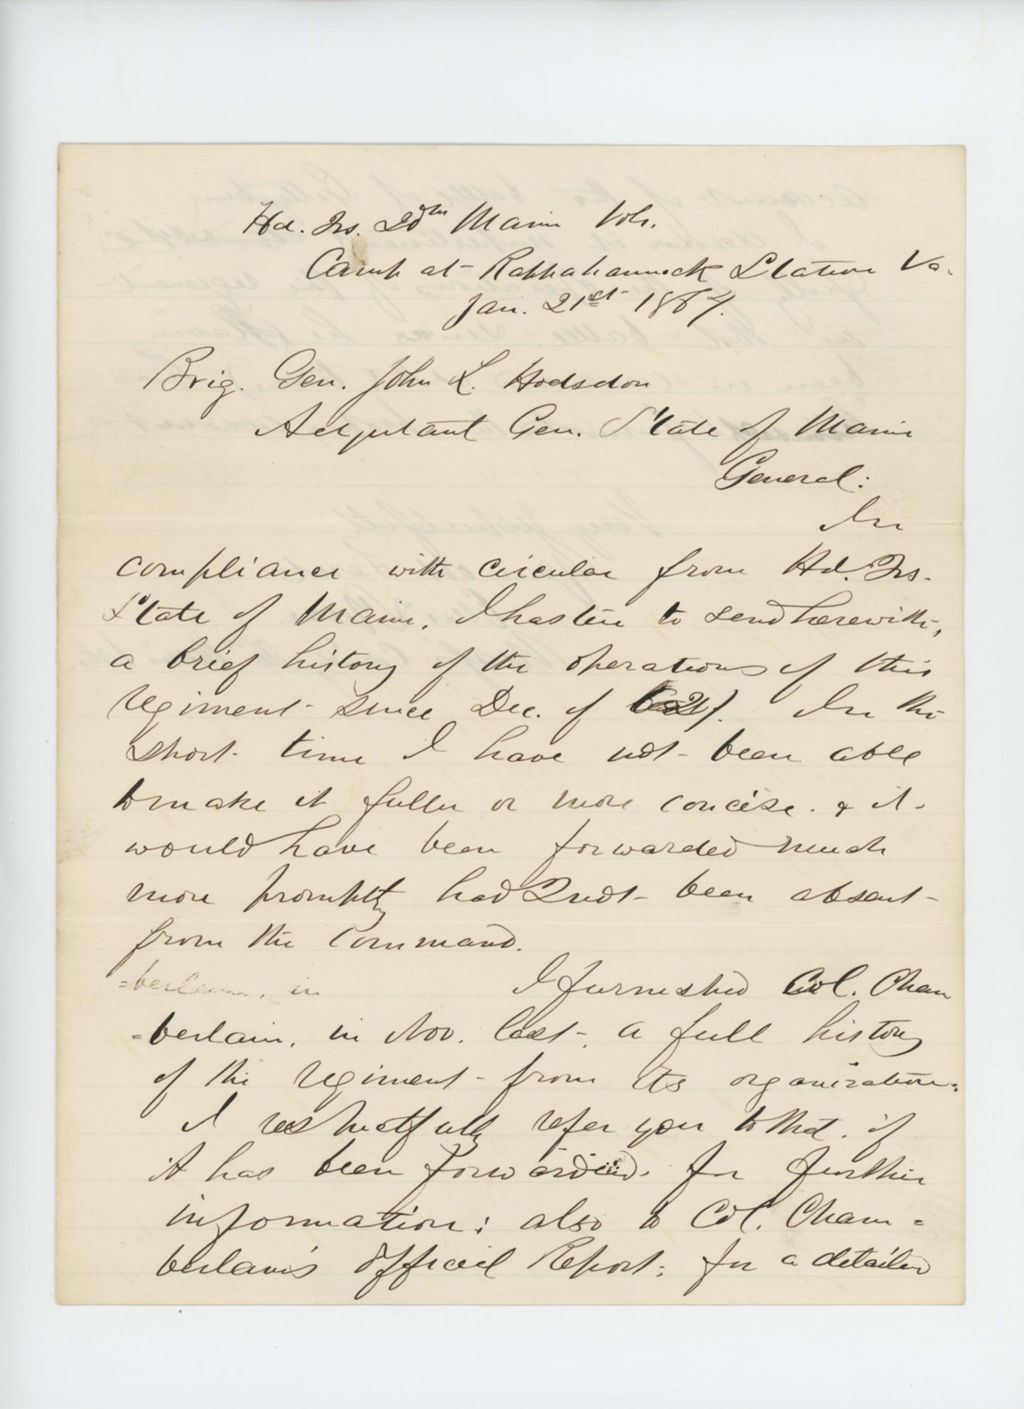 Hd. Qrs. 20th Maine Vols.
Camp at Rappahannock Station Va.
Jan. 21st 1864.
Brig. Gen. John L. Hodsdon
Adjutant Gen. State of Maine
General:
In
compliance with circular from Hd. Qrs.
State of Maine, I hasten to send herewith,
a brief history of the operations of this
regiment since Dec. of In the
short time I have not been able
to make it fuller or more concise. & it
would have been forwarded much
more promptly had I not been absent
from the Command.
=berlain, in I furnished Col. Cham
=berlain, in Nov. last, a full history
of the regiment from its organization.
I respectfully refer you to that, if
it has been forwarded, for further
information; also to Col. Cham=
berlain's Official Report; for a detailed